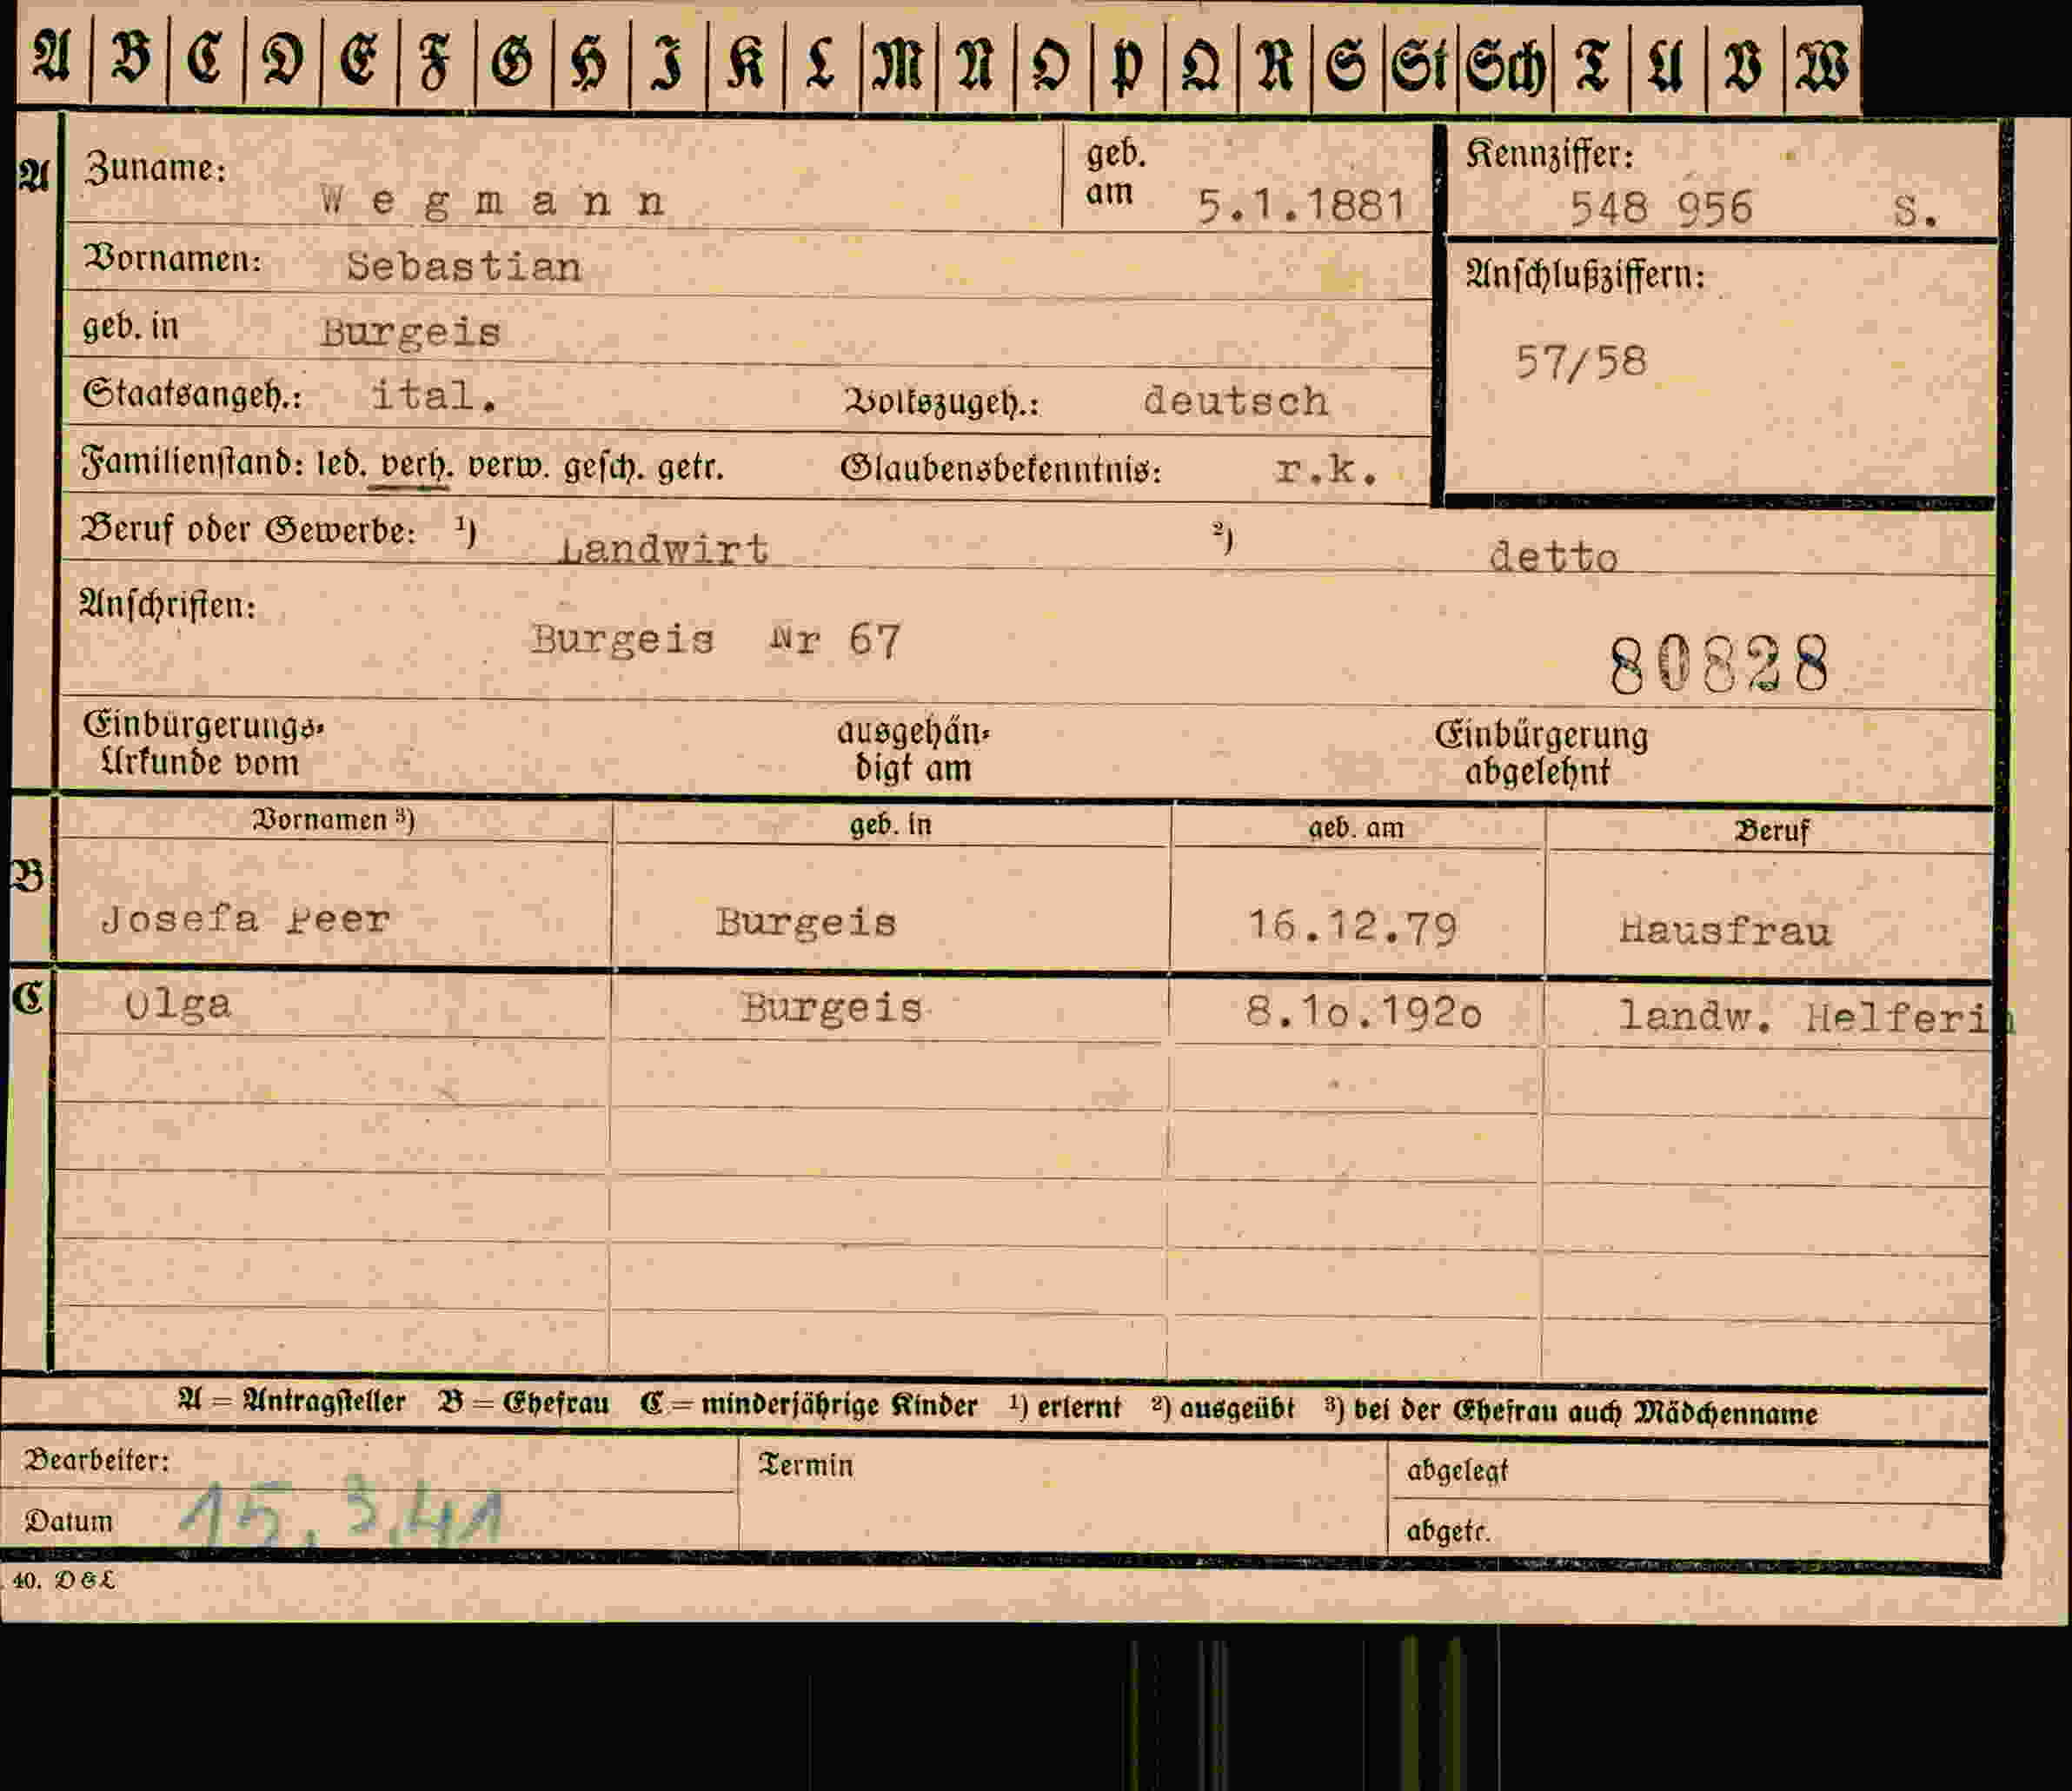 A B C D E F G H I K L M N O P Q R S St Sch T U V W
A Zuname: Wegmann geb. am 5.1.1881 Kennziffer: 548 956 S.
Vornamen: Sebastian Anschlußziffern:
geb. in Burgeis 57/58
Staatsangeh.: ital. Volkszugeh.: deutsch
Familienstand: led. verh. verw. gesch. getr. Glaubensbekenntnis: r.k.
Beruf oder Gewerbe: ¹) Landwirt ²) detto
Anschriften: Burgeis Nr 67 80828
Einbürgerungs- ausgehän- Einbürgerung
Urkunde vom digt am abgelehnt
Vornamen ³) geb. in geb. am Beruf
B Josefa Peer Burgeis 16.12.79 Hausfrau
C Olga Burgeis 8.1o.192o landw. Helferin
A = Antragsteller B = Ehefrau C = minderjährige Kinder ¹) erlernt ²) ausgeübt ³) bei der Ehefrau auch Mädchenname
Bearbeiter: Termin abgelegt
Datum 15.3.41 abgetr.
40. D & L